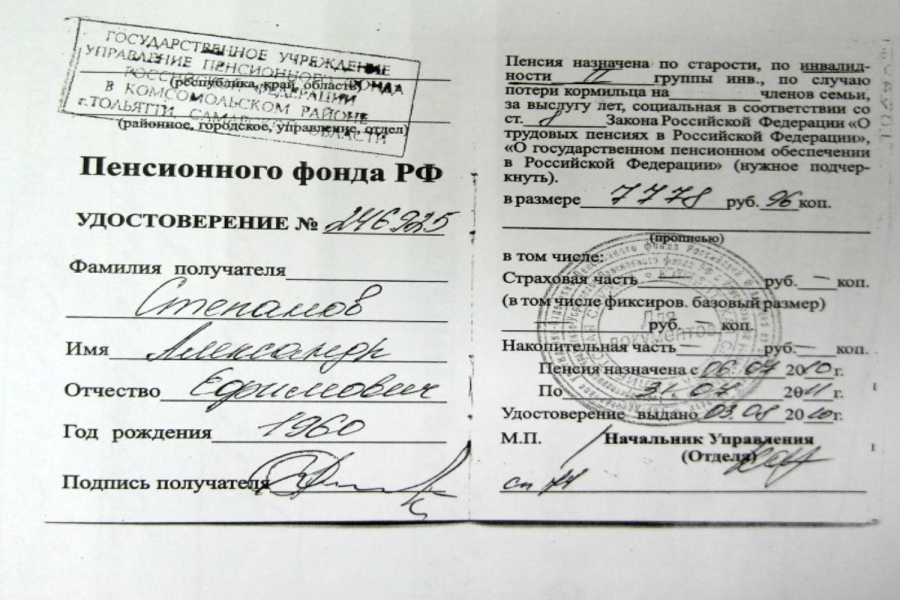 ГОСУДАРСТВЕННОЕ УЧРЕЖДЕНИЕ
УПРАВЛЕНИЕ ПЕНСИОННОГО ФОНДА
РОССИЙСКОЙ ФЕДЕРАЦИИ
(республика, край, область)
В КОМСОМОЛЬСКОМ РАЙОНЕ
г.ТОЛЬЯТТИ, САМАРСКОЙ ОБЛАСТИ
(районное, городское, управление, отдел)
Пенсионного фонда РФ
УДОСТОВЕРЕНИЕ № 246925
Фамилия получателя
Степанов
Имя Александр
Отчество Ефимович
Год рождения 1960
Подпись получателя
Пенсия назначена по старости, по инвалид-
ности II группы инв., по случаю
потери кормильца на членов семьи,
за выслугу лет, социальная в соответствии со
ст. 8 Закона Российской Федерации «О
трудовых пенсиях в Российской Федерации»,
«О государственном пенсионном обеспечении
в Российской Федерации» (нужное подчер-
кнуть).
в размере 7778 руб. 96 коп.
(прописью)
в том числе:
Страховая часть руб. — коп.
(в том числе фиксиров. базовый размер)
руб. — коп.
Накопительная часть руб. — коп.
Пенсия назначена с 06.07 2010 г.
По 31.07 2011 г.
Удостоверение выдано 03.08 2010 г.
М.П. Начальник Управления
(Отдела)
Для
документов